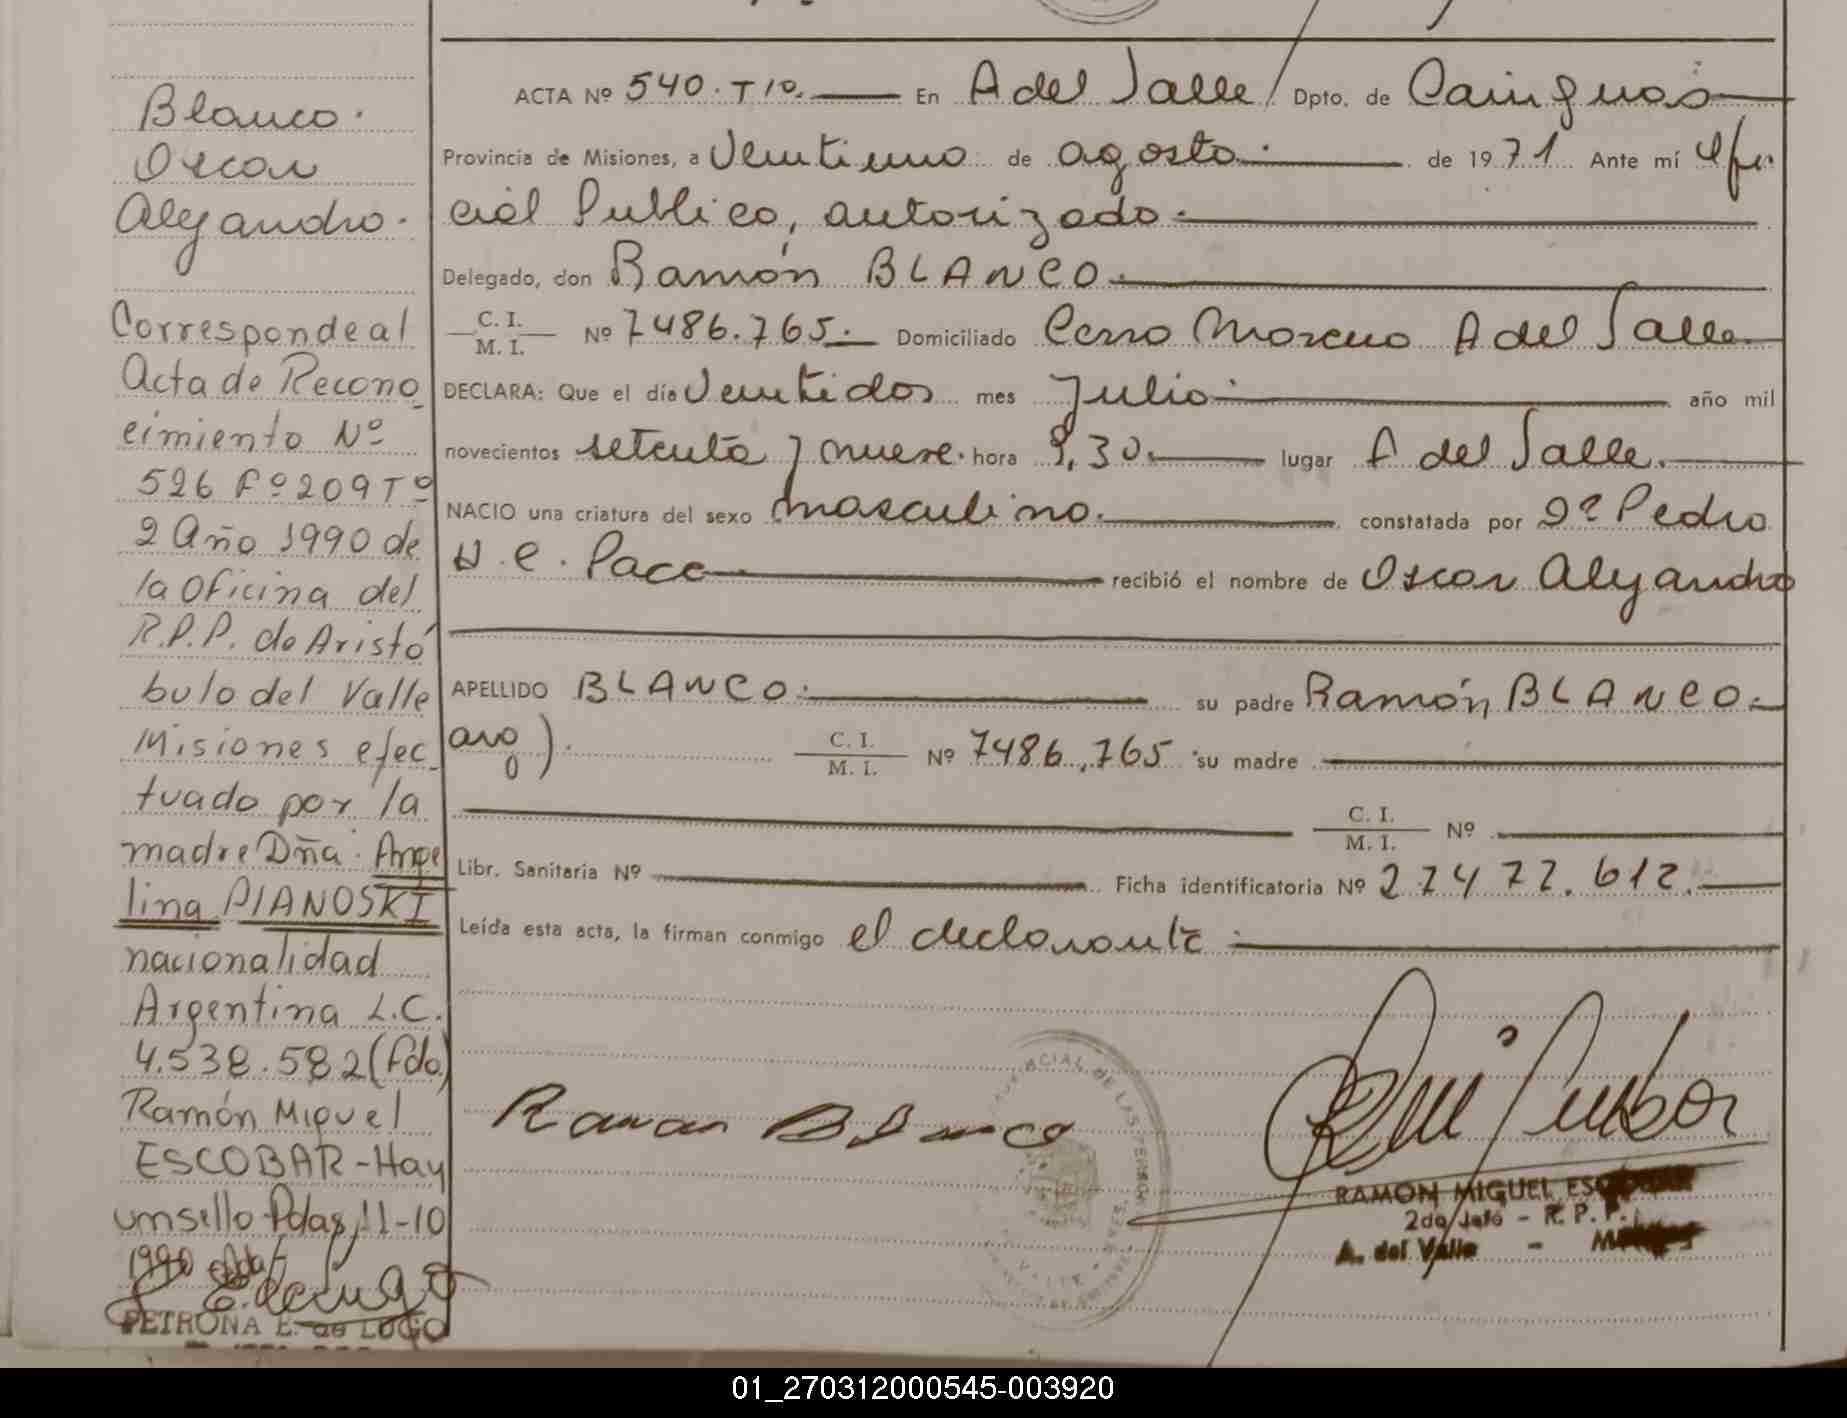 Blanco.
Oscar
Alejandro.
Corresponde al
Acta de Recono
cimiento Nº
526 Fº 209 Tº
2 Año 1990 de
la Oficina del
R.P.P. de Aristó
bulo del Valle
Misiones efec
tuado por la
madre Dña. Ange
lina PIANOSKI
nacionalidad
Argentina L.C.
4.538.582 (fdo)
Ramón Miguel
ESCOBAR - Hay
un sello Pdas, 11-10
1990
PETRONA E. de LUGO
ACTA Nº 540. T10. En A del Valle Dpto. de Cainguas
Provincia de Misiones, a Veintiuno de agosto. de 1971 Ante mí Ofi
cial Publico, autorizado.
Delegado, don Ramón BLANCO.
C. I.
M. I. Nº 7486.765. Domiciliado Cerro Moreno A del Valle
DECLARA: Que el día Veintidos mes Julio año mil
novecientos setenta y nueve. hora 9,30. lugar A del Valle.
NACIO una criatura del sexo masculino. constatada por Dº Pedro
C. Pace recibió el nombre de Oscar Alejandro
APELLIDO BLANCO. su padre Ramón BLANCO.
arg). C. I.
M. I. Nº 7486.765 su madre
C. I.
M. I. Nº
Libr. Sanitaria Nº Ficha identificatoria Nº 27477.612.
Leída esta acta, la firman conmigo el declarante
Ramon Blanco
RAMON MIGUEL ESCOBAR
2do Jefe - R. P. P.
A. del Valle -
01_270312000545-003920